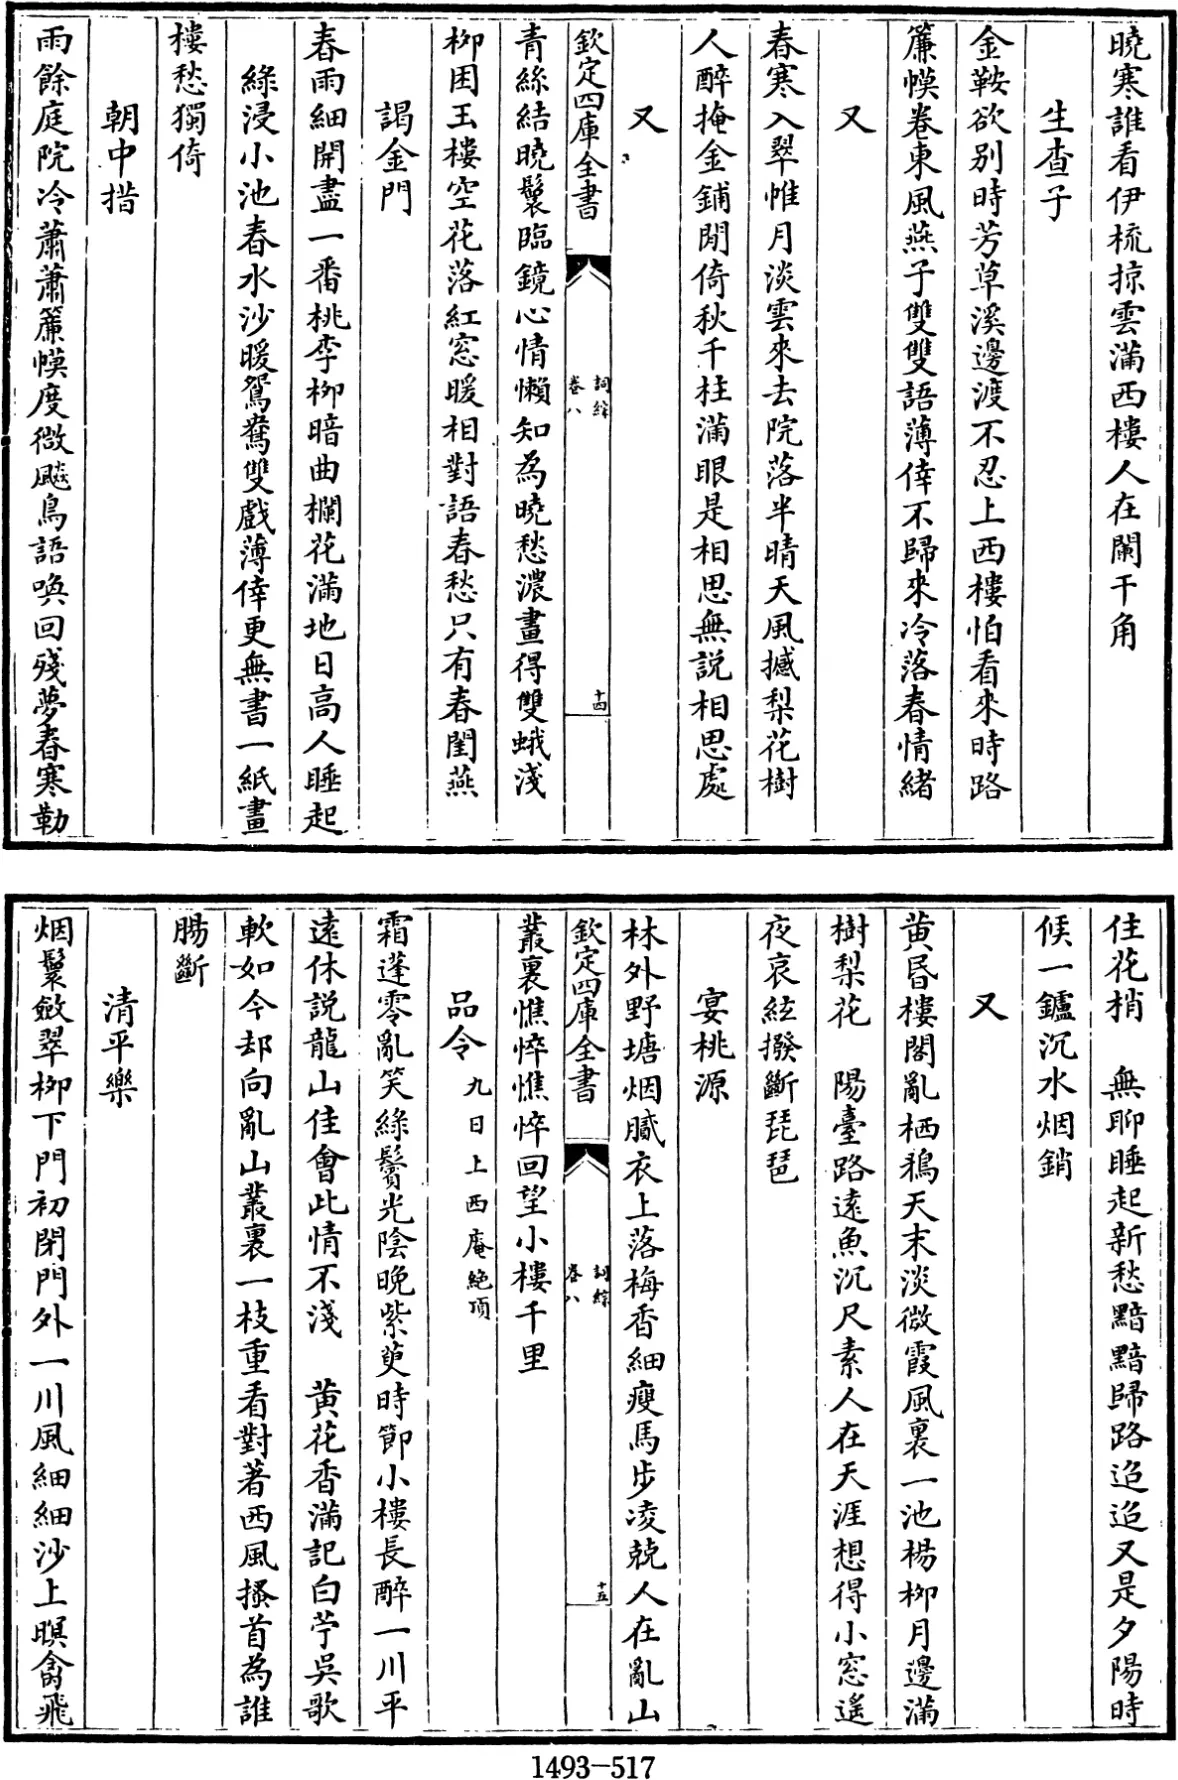 曉寒誰看伊梳掠雲滿西樓人在闌干角
生查子
金鞍欲别時芳草溪邊渡不忍上西樓怕看來時路
簾幙卷東風燕子雙雙語薄倖不歸來冷落春情緒
又
春寒入翠帷月淡雲來去院落半晴天風撼梨花樹
人醉掩金鋪閒倚秋千柱滿眼是相思無説相思處
又
欽定四庫全書
詞綜
卷八
十四
青絲結曉鬟臨鏡心情懶知為曉愁濃畫得雙蛾淺
柳困玉樓空花落紅窓暖相對語春愁只有春閨燕
謁金門
春雨細開盡一番桃李柳暗曲欄花滿地日高人睡起
綠浸小池春水沙暖鴛鴦雙戲薄倖更無書一紙畫
樓愁獨倚
朝中措
雨餘庭院冷蕭蕭簾幙度微飈鳥語喚回殘夢春寒勒
住花梢　無聊睡起新愁黯黯歸路迢迢又是夕陽時
候一鑪沉水烟銷
又
黄昏樓閣亂栖鴉天末淡微霞風裏一池楊柳月邊滿
樹梨花　陽臺路遠魚沉尺素人在天涯想得小窓遙
夜哀絃撥斷琵琶
宴桃源
林外野塘烟膩衣上落梅香細瘦馬步凌兢人在亂山
欽定四庫全書
詞綜
卷八
十五
叢裏憔悴憔悴回望小樓千里
品令九日上西庵絶頂
霜蓬零亂笑綠鬢光陰晚紫萸時節小樓長醉一川平
遠休説龍山佳會此情不淺　黄花香滿記白苧吳歌
軟如今却向亂山叢裏一枝重看對著西風搔首為誰
腸斷
清平樂
烟鬟斂翠柳下門初閉門外一川風細細沙上暝禽飛
1493-517